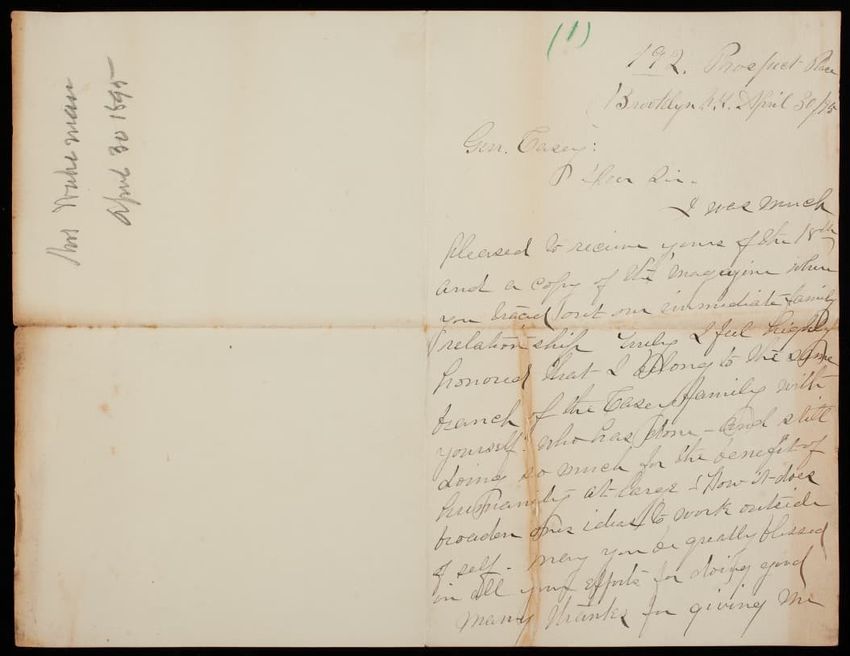 Mrs Wakeman
April 30 1895
(1)
192. Prospect Place
Brooklyn N.Y. April 30/95
Gen. Casey:
Dear Sir.
I was much
pleased to receive yours of the 18th
and a copy of the magazine where
you traced out our immediate family
relationship Truly I feel highly
honored that I belong to the same
branch of the Casey family with
yourself. who has done - and still
doing so much for the benefit of
humanity at large - How it does
broaden ones ideas to work outside
of self - May you be greatly blessed
in all your efforts for doing good
many thanks for giving me